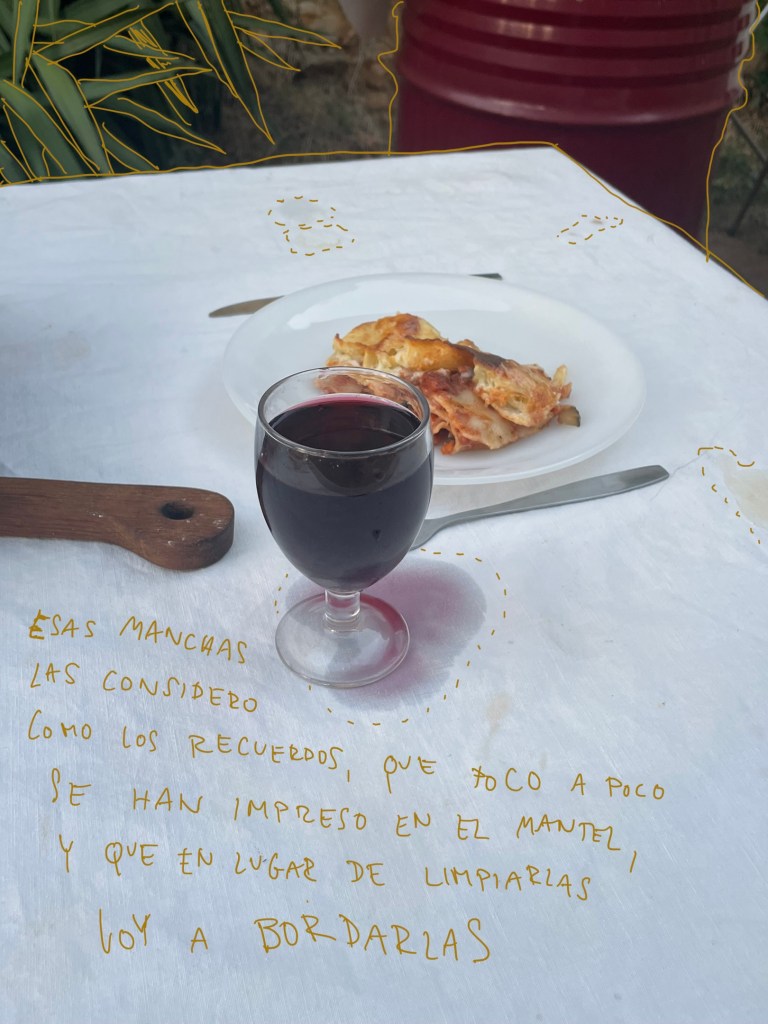 ESAS MANCHAS
LAS CONSIDERO
COMO LOS RECUERDOS, QUE POCO A POCO
SE HAN IMPRESO EN EL MANTEL,
Y QUE EN LUGAR DE LIMPIARLAS
VOY A BORDARLAS